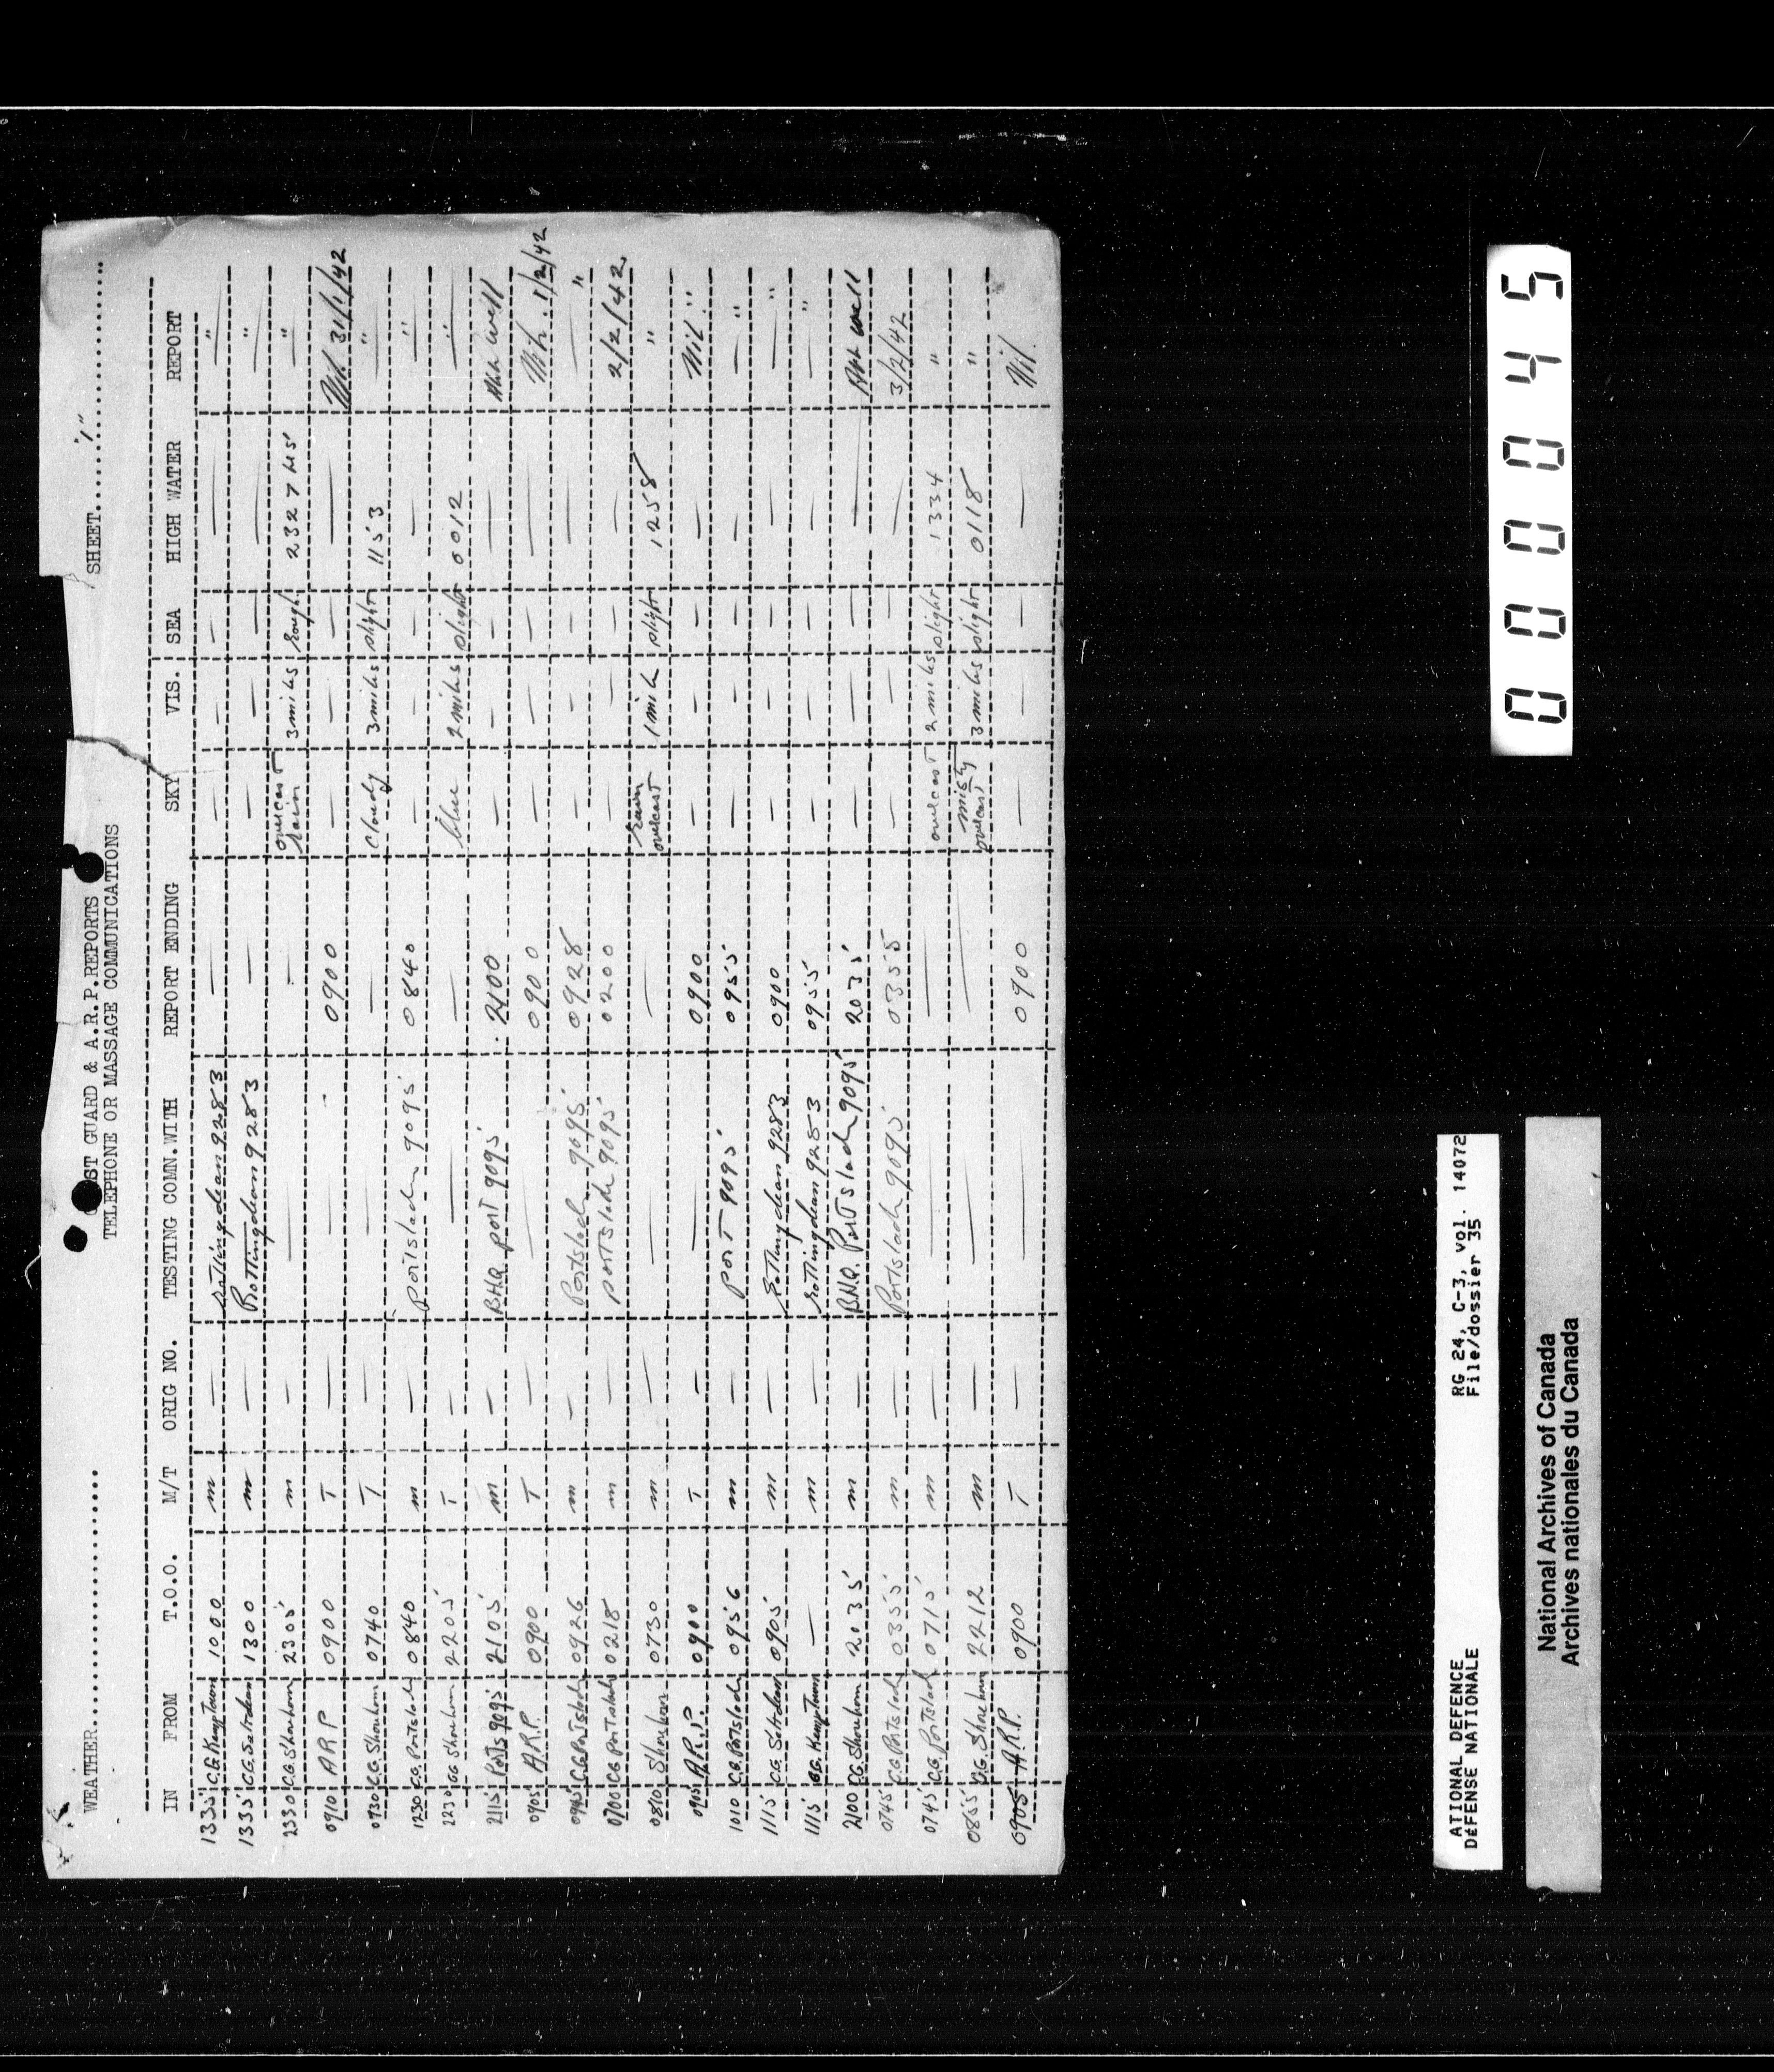 WEATHER.............................. SHEET....."1"....................
ST GUARD & A.R.P.REPORTS
TELEPHONE OR MASSAGE COMMUNICATIONS
IN FROM T.O.O. M/T ORIG NO. TESTING COMN.WITH REPORT ENDING SKY VIS. SEA HIGH WATER REPORT
1335 C.G. Kemp Town 1000 m — Rottingdean 9283 — — — — — "
1335 C.G. Saltdean 1300 m — Rottingdean 9283 — — — — — "
2330 C.G. Shoreham 2305 m — — — overcast rain 3 miles rough 2327 "
0910 A R P 0900 T — — 0900 — — — — 31/1/42
0930 C.G. Shoreham 0740 T — — — cloudy 3 miles slight 1153 "
1230 C.G. Portslade 0840 m — Portslade 9095 0840 — — — — "
1230 CG Shoreham 2205 T — — — blue 2 miles slight 0012 "
2115 Ports 9095 2105 m — B.H.Q. Port 9095 2100 — — — — well
0905 A.R.P. 0900 T — — 0900 — — — — 1/2/42
0945 C.G. Portslade 0926 m — Portslade 9095 0928 — — — — "
0700 CG Portslade 0218 m — Portslade 9095 0200 — — — — 2/2/42
0810 Shoreham 0730 m — — — rain overcast 1 mile slight 1258 "
0905 A.R.P. 0900 T — — 0900 — — — — Nil "
1010 C.G. Portslade 0956 m — Port 9095 0955 — — — — — "
1115 C.G. Saltdean 0905 m — Rottingdean 9283 0900 — — — — — "
1115 C.G. Kemp Town — m — Rottingdean 9283 0955 — — — — — "
2100 C.G. Shoreham 2035 m — B.H.Q. Portslade 9095 2035 — — — — well
0745 C.G. Portslade 0355 m — Portslade 9095 0355 — — — — 3/2/42
0745 C.G. Portslade 0715 m — — — overcast 2 miles slight 1334 "
0855 C.G. Shoreham 2212 m — — — misty overcast 3 miles slight 0118 "
0905 A.R.P. 0900 T — — 0900 — — — — Nil.
000045
ATIONAL DEFENCE RG 24, C-3, vol. 14072
DÉFENSE NATIONALE File/dossier 35
National Archives of Canada
Archives nationales du Canada